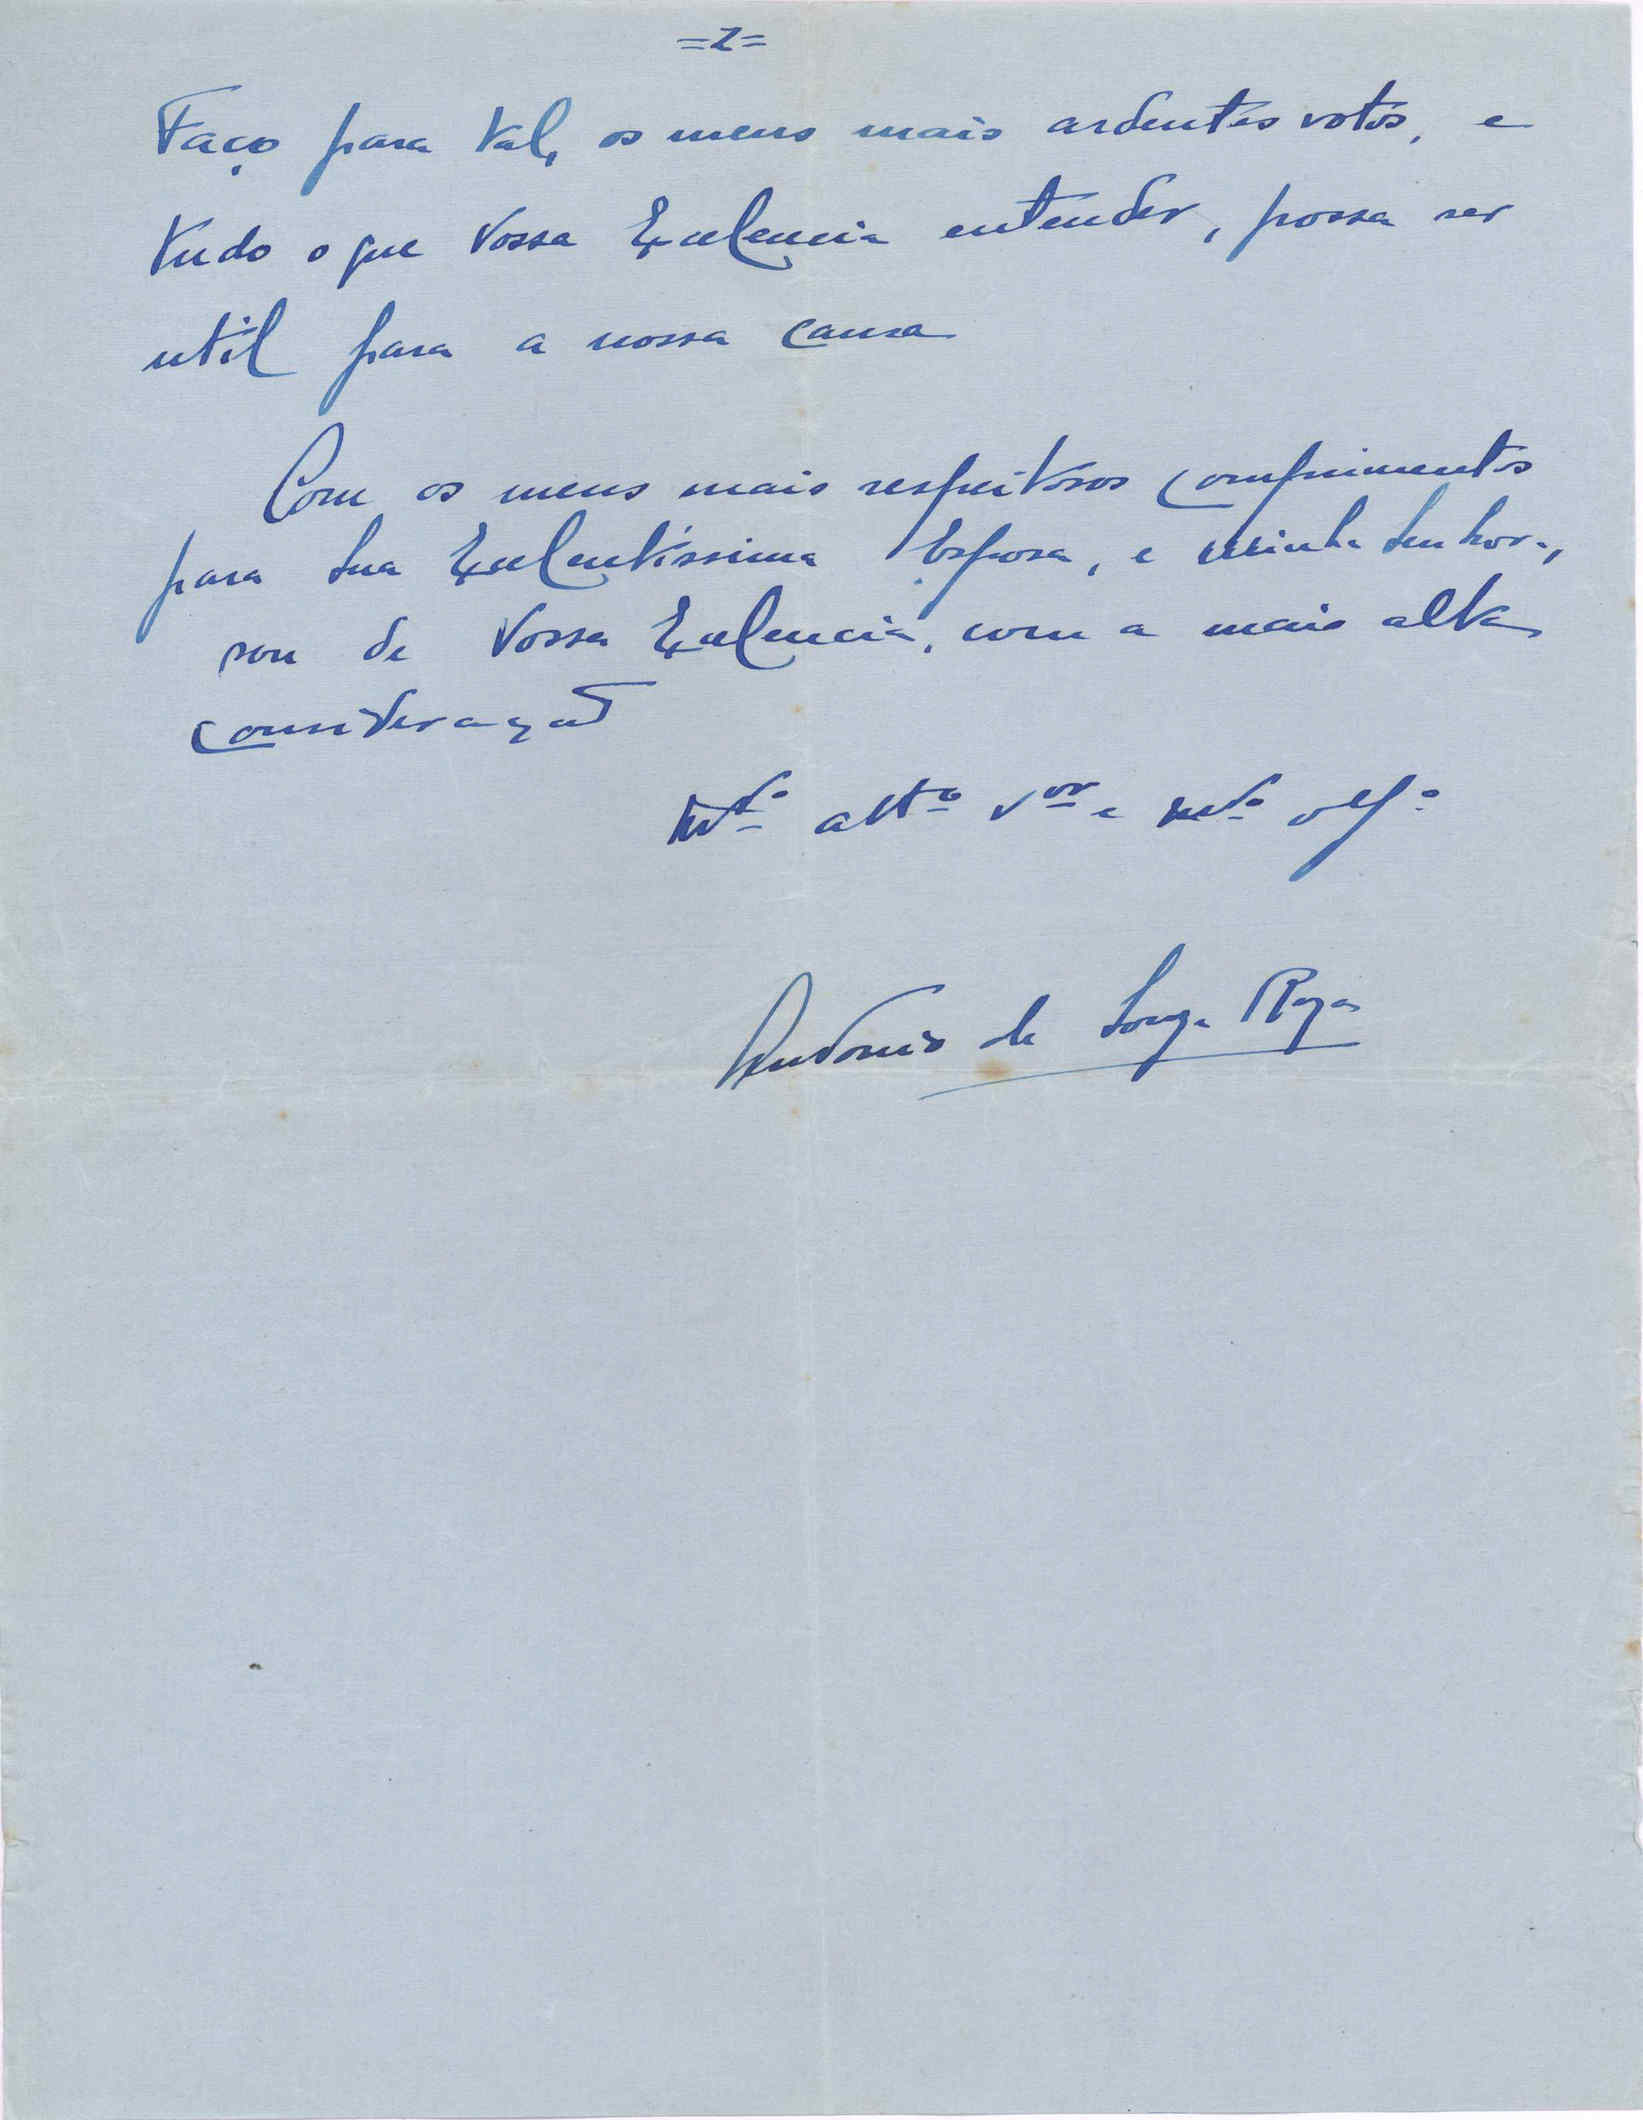 =2=
Faço para tal, os meus mais ardentes votos, e
tudo o que Vossa Excelencia entender, possa ser
util para a nossa causa
Com os meus mais respeitosos comprimentos
para Sua Excelentissima Esposa, e minha Senhora,
sou de Vossa Excelencia, com a mais alta
consideração
Mto attº vor e mto
Antonio de Souza Roza